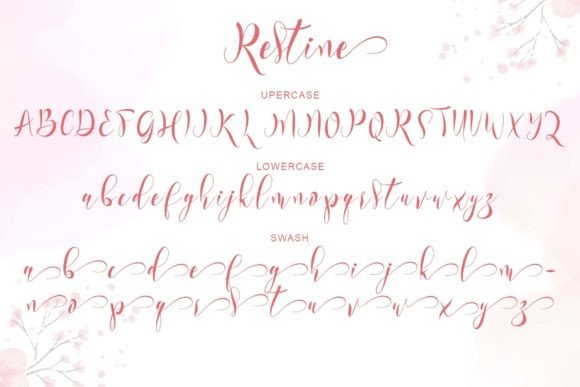 Restine
UPERCASE
ABCDEFGHIJKLMNOPQRSTUVWXYZ
LOWERCASE
abcdefghijklmnopqrstuvwxyz
SWASH
a b c d e f g h i j k l m -
n o p q r s t u v w x y z